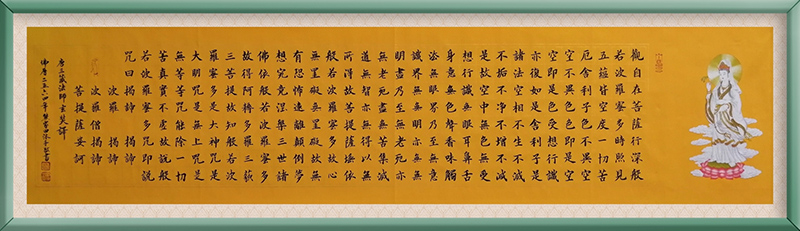 觀自在菩薩行深般
若波羅蜜多時照見
五蘊皆空度一切苦
厄舍利子色不異空
空不異色色即是空
空即是色受想行識
亦復如是舍利子是
諸法空相不生不滅
不垢不淨不增不減
是故空中無色無受
想行識無眼耳鼻舌
身意無色聲香味觸
法無眼界乃至無意
識界無無明亦無無
明盡乃至無老死亦
無老死盡無苦集滅
道無智亦無得以無
所得故菩提薩埵依
般若波羅蜜多故心
無罣礙無罣礙故無
有恐怖遠離顛倒夢
想究竟涅槃三世諸
佛依般若波羅蜜多
故得阿耨多羅三藐
三菩提故知般若波
羅蜜多是大神咒是
大明咒是無上咒是
無等等咒能除一切
苦真實不虛故說般
若波羅蜜多咒即說
咒曰 揭諦 揭諦
波羅 揭諦
波羅僧揭諦
菩提薩婆訶
唐三藏法師玄奘譯
佛曆二五六四年